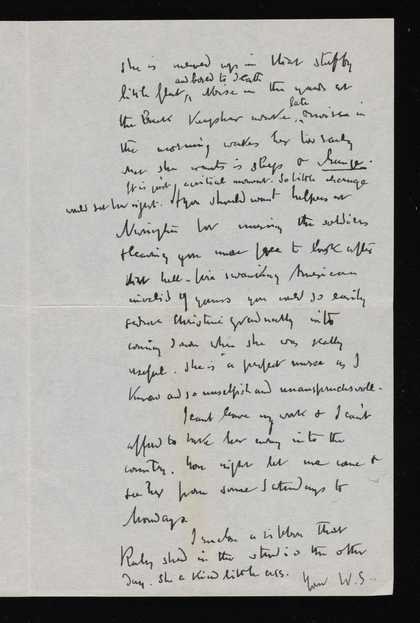 she is mewed up in that stuffy
and bored to death
little flat, Noise in the yards at
the Buck wake late, noise in
the morning wakes her too early
& she wants is sleep & change.
It is just a critical moment. So little change
would set her right. If you should want helpers at
for nursing the soldiers
leaving you more free to look after
that hell-fire American
invalid of yours you could so easily
Christine gradually into
coming down when she was really
useful. She is a perfect nurse as I
know and so unselfish and unanspruchsvoll.
I cant leave my work & I can't
afford to take her away into the
country. You might let me come &
see her from some Saturdays to
Mondays
I enclose a ribbon that
Ruby shed in the studio the other
day. She a kind little ass. Your W.S.